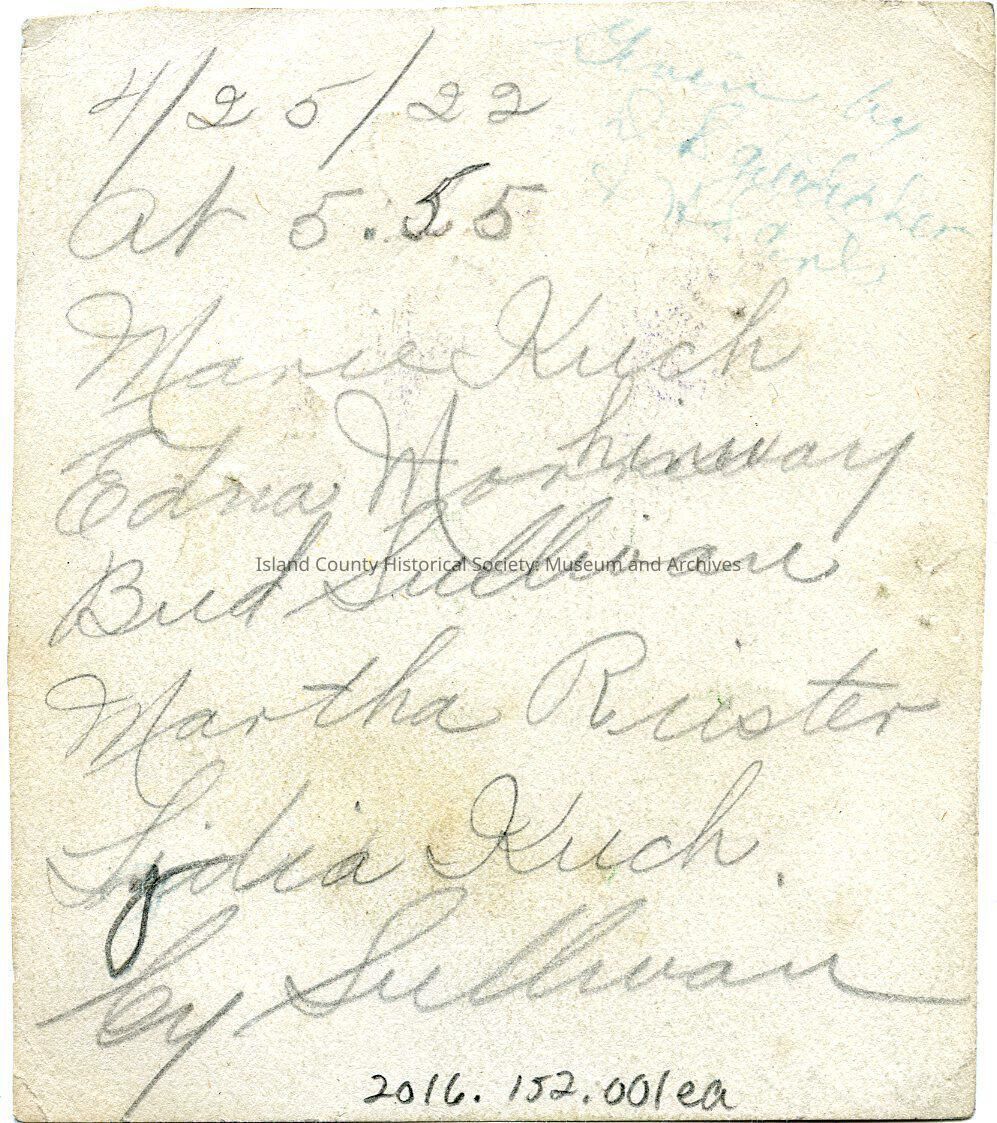 4/25/22
At 5.55
Given by
D E
&
Marie Kuch
Edna
Bud Sullivan
Island County Historical Society: Museum and Archives
Martha Riister
Lydia Kuch.
by Sullivan
2016.152.001ea